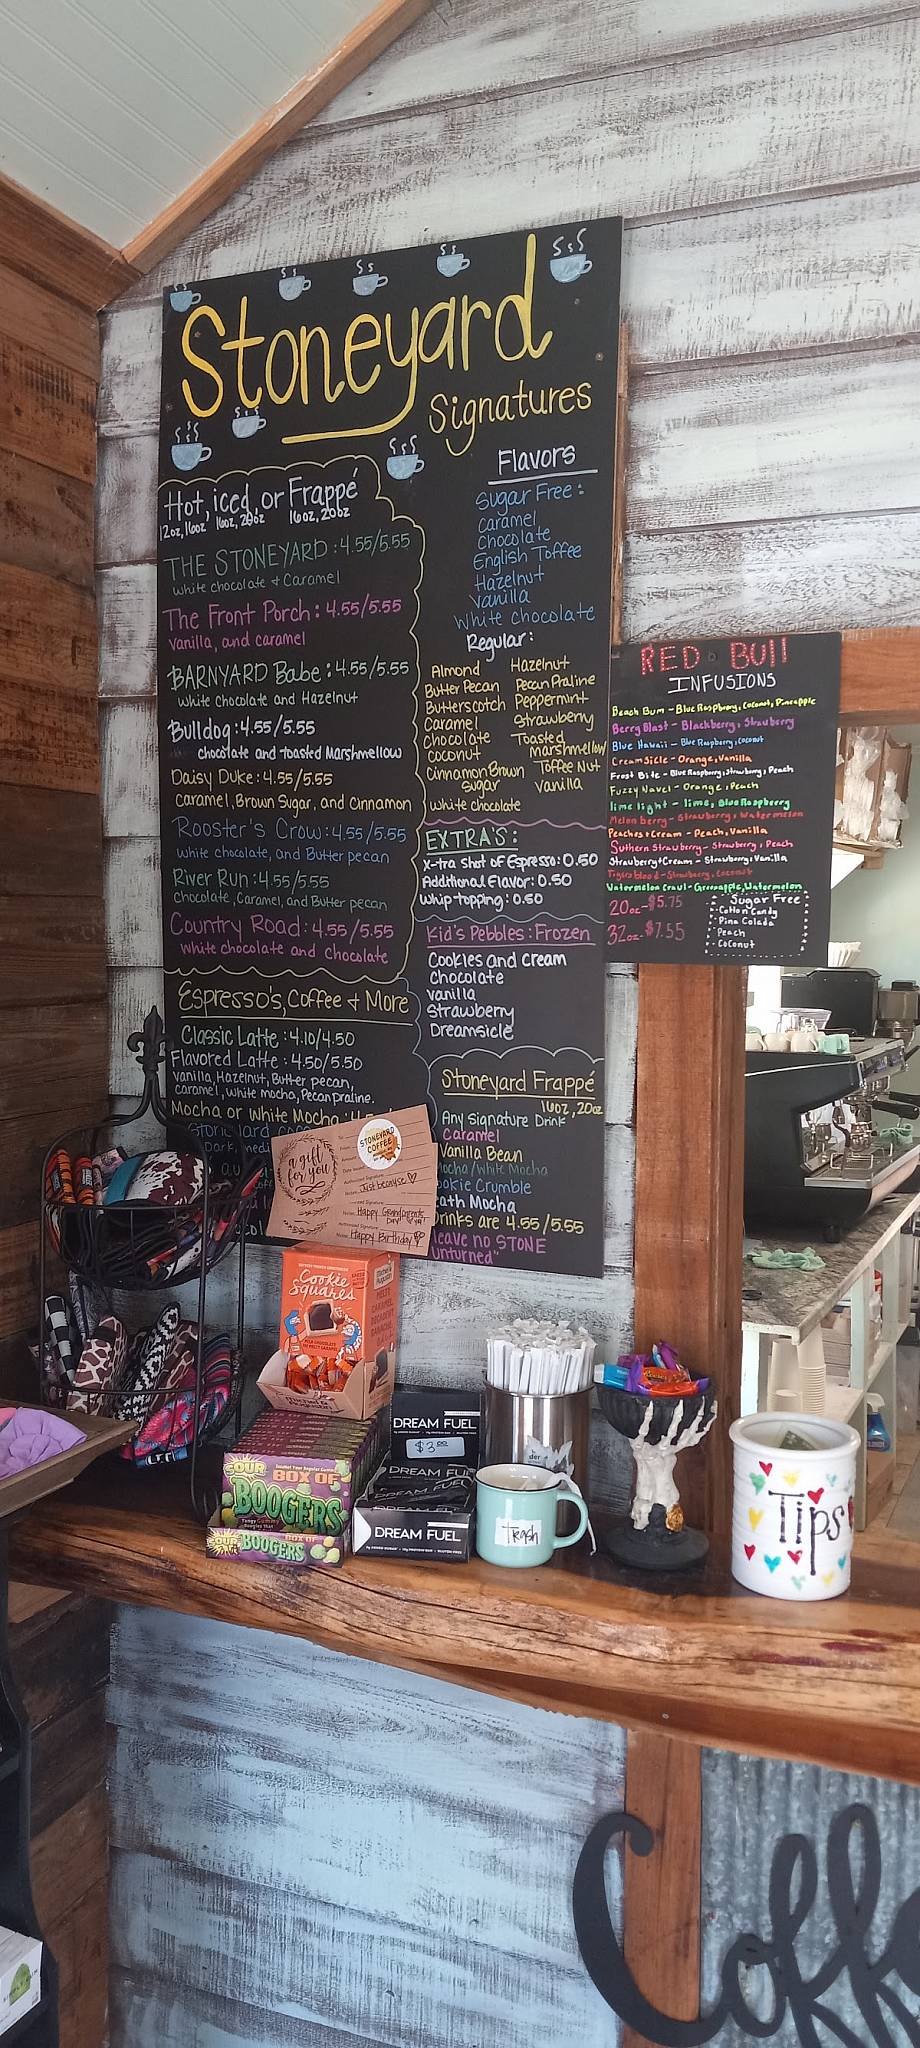 Stoneyard
Signatures
Hot, iced, or Frappé
12oz, 16oz 16oz, 20oz 16oz, 20oz
THE STONEYARD : 4.55/5.55
white chocolate + Caramel
The Front Porch : 4.55/5.55
vanilla, and caramel
BARNYARD Babe : 4.55/5.55
White chocolate and Hazelnut
Bulldog : 4.55/5.55
chocolate and toasted Marshmellow
Daisy Duke : 4.55/5.55
Caramel, Brown Sugar, and Cinnamon
Rooster's Crow : 4.55/5.55
white chocolate, and Butter pecan
River Run : 4.55/5.55
chocolate, Caramel, and Butter pecan
Country Road : 4.55/5.55
white chocolate and chocolate
Espresso's, Coffee + More
Classic Latte : 4.10/4.50
Flavored Latte : 4.50/5.50
vanilla, Hazelnut, Butter pecan,
Caramel, white mocha, Pecan praline.
Mocha or White Mocha :
Flavors
Sugar Free :
Caramel
Chocolate
English Toffee
Hazelnut
Vanilla
White chocolate
Regular :
Almond
Butter Pecan
Butterscotch
Caramel
chocolate
coconut
Cinnamon Brown
Sugar
White chocolate
Hazelnut
Pecan Praline
Peppermint
Strawberry
Toasted
Marshmellow
Toffee Nut
Vanilla
EXTRA'S :
X-tra Shot of Espresso : 0.50
Additional Flavor : 0.50
Whip topping : 0.50
Kid's Pebbles : Frozen
Cookies and Cream
Chocolate
Vanilla
Strawberry
Dreamsicle
Stoneyard Frappé
16oz, 20oz
Any Signature Drink
Caramel
Vanilla Bean
Mocha/White Mocha
Cookie Crumble
Mocha
Drinks are 4.55/5.55
leave no STONE
unturned"
RED BUll
INFUSIONS
Beach Bum - Blue Raspberry, Coconut, Pineapple
Berry Blast - Blackberry, Strawberry
Blue Hawaii - Blue Raspberry, Coconut
Creamsicle - Orange, Vanilla
Frost Bite - Blue Raspberry, Strawberry, Peach
Fuzzy Navel - Orange, Peach
lime light - lime, Blue Raspberry
Melon berry - Strawberry, Watermelon
Peaches + Cream - Peach, Vanilla
Suthern Strawberry - Strawberry, Peach
Strawberry + Cream - Strawberry, Vanilla
Tigers blood - Strawberry, Coconut
Watermelon Crawl - Green apple, Watermelon
20oz - $5.75
32oz - $7.55
Sugar Free
- Cotton Candy
- Pina Colada
- Peach
- Coconut
a gift
for you
STONEYARD
COFFEE
Just because
Happy Grandparents
Day!
Happy Birthday
Cookie
Squares
DREAM FUEL
$3.00
DREAM FUEL
DREAM FUEL
SOUR
BOX OF
BOOGERS
SOUR
BOX OF
BOOGERS
Trash
Tips
Coff